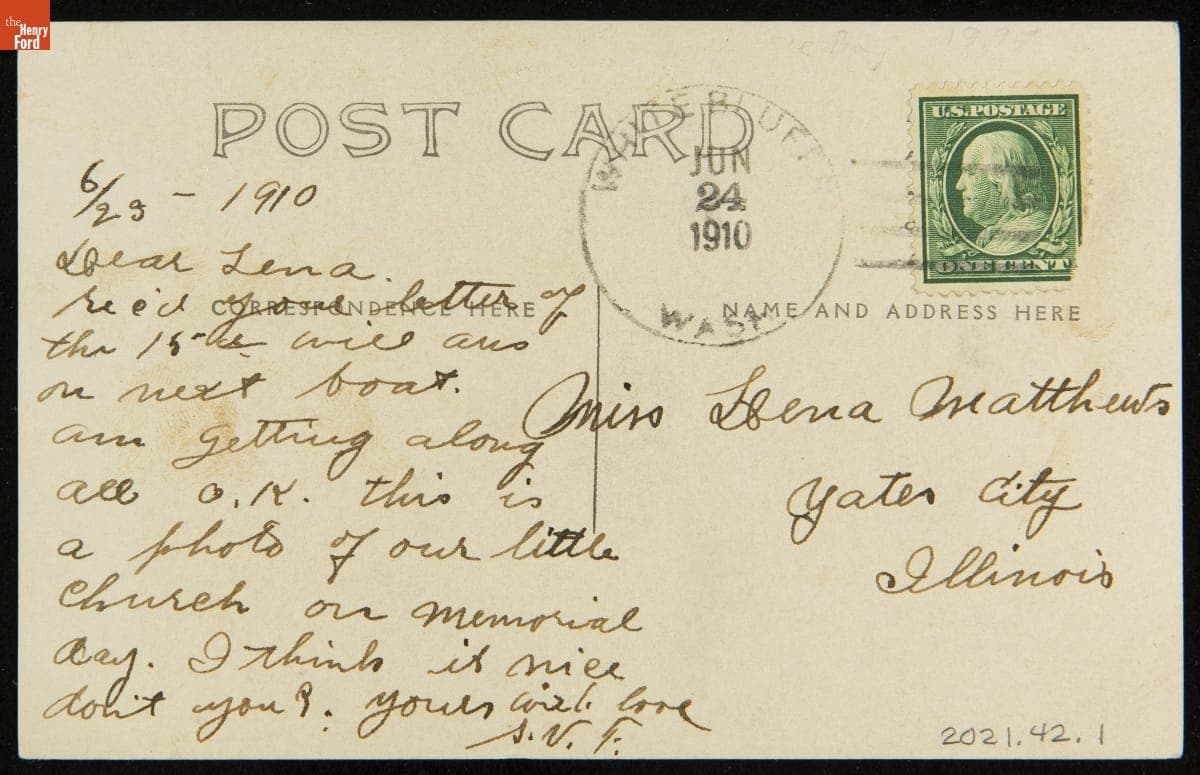 the
Henry
Ford
POST CARD
JUN
24
1910
WASH
U.S. POSTAGE
ONE CENT
6/23 - 1910
Dear Lena.
CORRESPONDENCE HERE
rec'd your letter of
the 15th will ans
on next boat.
am getting along
all O.K. this is
a photo of our little
church on memorial
day. I think it nice
don't you?. yours with love
S.V.F.
NAME AND ADDRESS HERE
Miss Lena Matthews
Yates City
Illinois
2021.42.1